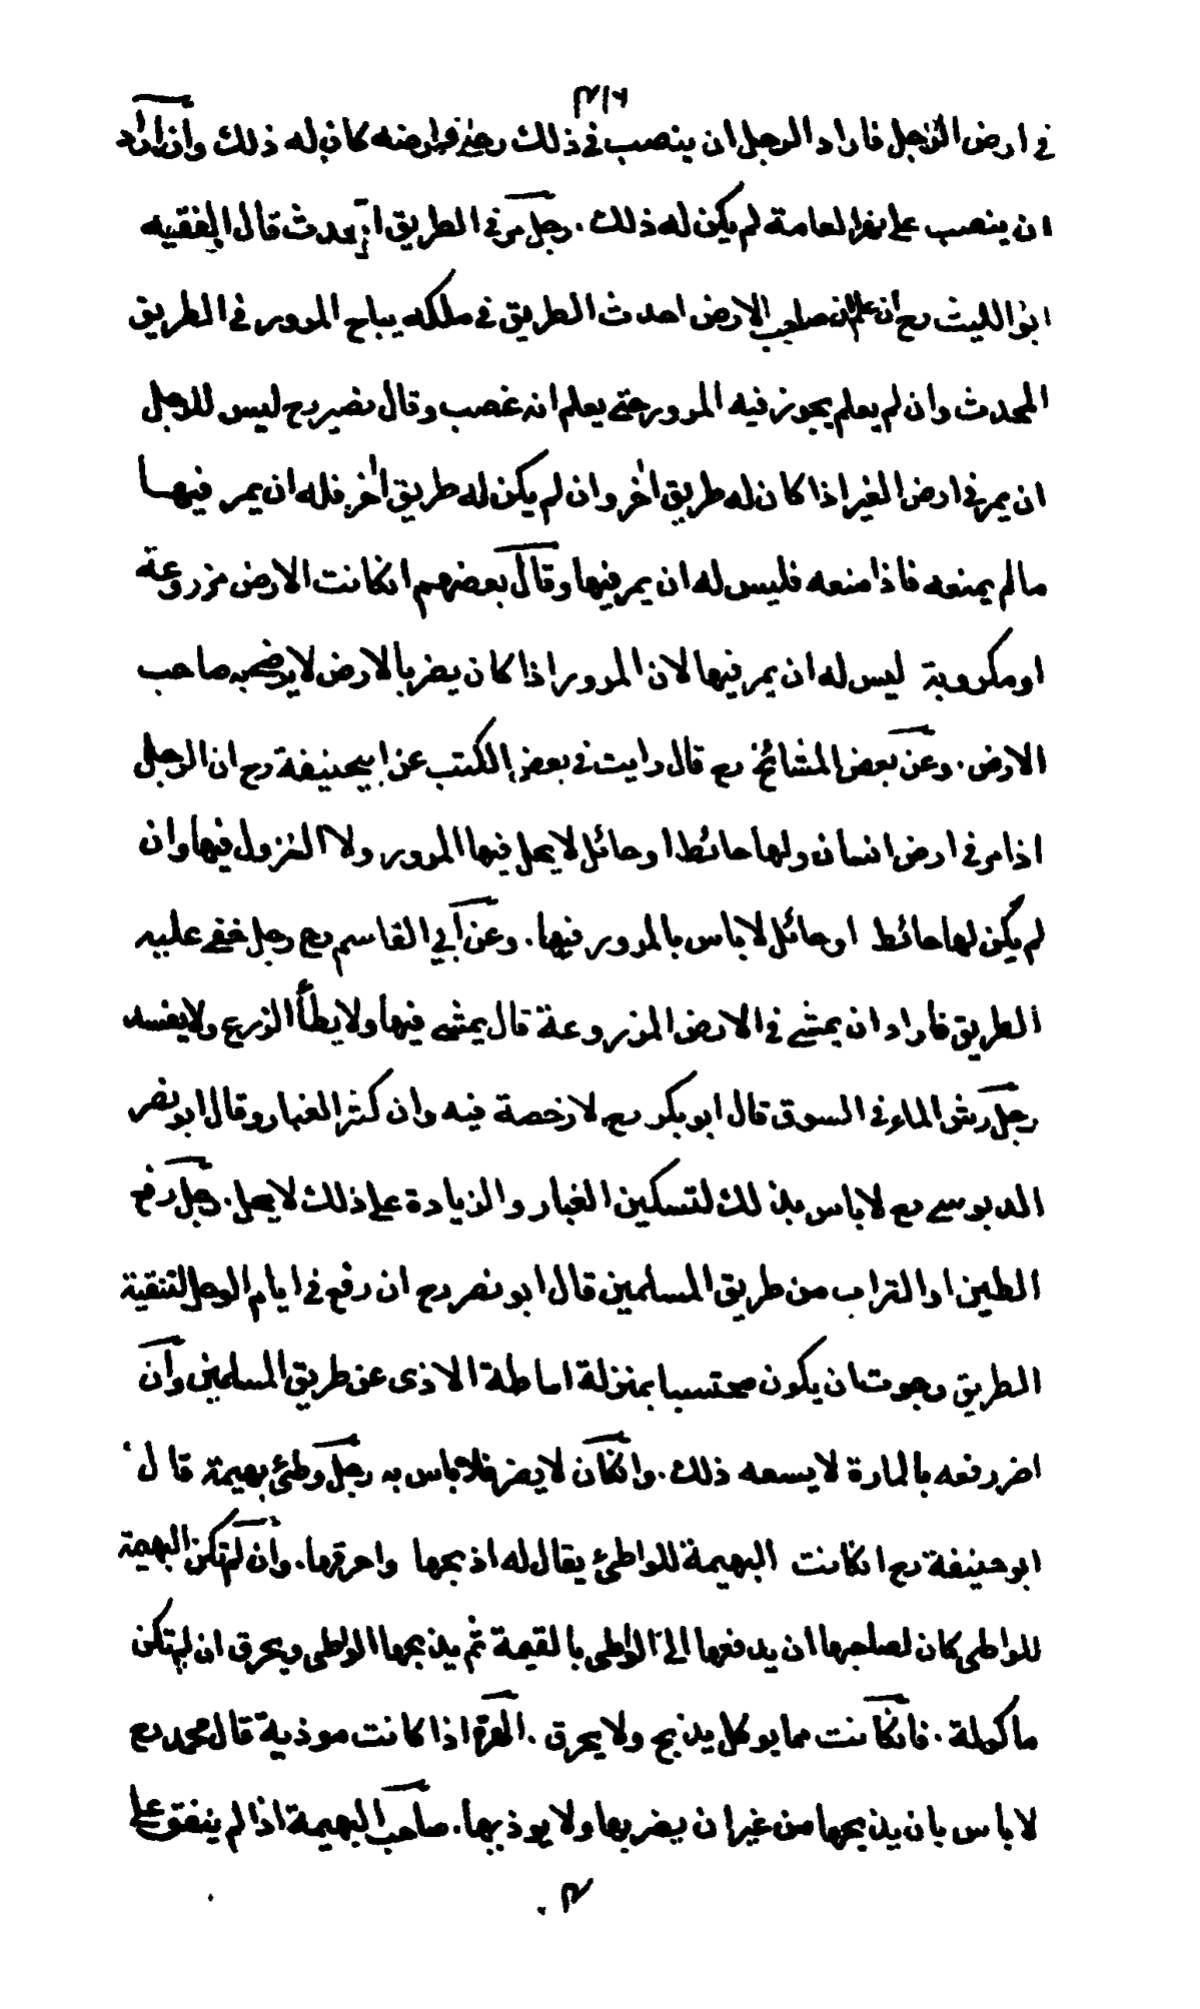 ٤١٦
في ارض الرجل فاراد الرجل ان ينصب في ذلك رحى في ارضه كان له ذلك وان اراد
ان ينصب على نهر العامة لم يكن له ذلك . رجل مر في الطريق احدث قال الفقيه
ابو الليث رح ان علم ان صاحب الارض احدث الطريق في ملكه يباح المرور في الطريق
المحدث وان لم يعلم يجوز فيه المرور حتى يعلم انه غصب وقال نصير رح ليس للرجل
ان يمر في ارض الغير اذا كان له طريق اخر وان لم يكن له طريق اخر فله ان يمر فيها
مالم يمنعه فاذا منعه فليس له ان يمر فيها وقال بعضهم انكانت الارض مزروعة
او مكروبة ليس له ان يمر فيها لان المرور اذا كان يضر بالارض لا يرضى به صاحب
الارض . وعن بعض المشائخ رح قال رايت في بعض الكتب عن ابيحنيفة رح ان الرجل
اذا مر في ارض انسان ولها حائط او حائل لا يحل فيها المرور ولا النزول فيها وان
لم يكن لها حائط او حائل لا باس بالمرور فيها . وعن ابي القاسم رح رجل خفي عليه
الطريق فاراد ان يمشي في الارض المزروعة قال يمشي فيها ولا يطأ الزرع ولا يفسد
رجل رش الماء في السوق قال ابو بكر رح لا رخصة فيه وان كثر الغبار وقال ابو نصر
الدبوسي رح لا باس بذلك لتسكين الغبار والزيادة على ذلك لا يحل . رجل رفع
الطين او التراب من طريق المسلمين قال ابو نصر رح ان رفع في ايام الوحل لتنقية
الطريق رجوت ان يكون محتسبا بمنزلة اماطة الاذى عن طريق المسلمين وان
اضر رفعه بالمارة لا يسعه ذلك . وانكان لا يضر فلا باس به رجل وطئ بهيمة قال
ابو حنيفة رح انكانت البهيمة للواطئ يقال له اذبحها واحرقها . وان لم تكن البهيمة
للواطى كان لصاحبها ان يدفعها الى الواطى بالقيمة ثم يذبحها الواطى ويحرق ان لم تكن
ماكولة . فانكانت مما يوكل يذبح ولا يحرق . الهرة اذا كانت موذية قال محمد رح
لا باس بان يذبحها من غير ان يضربها ولا يوذيها . صاحب البهيمة اذا لم ينفق على